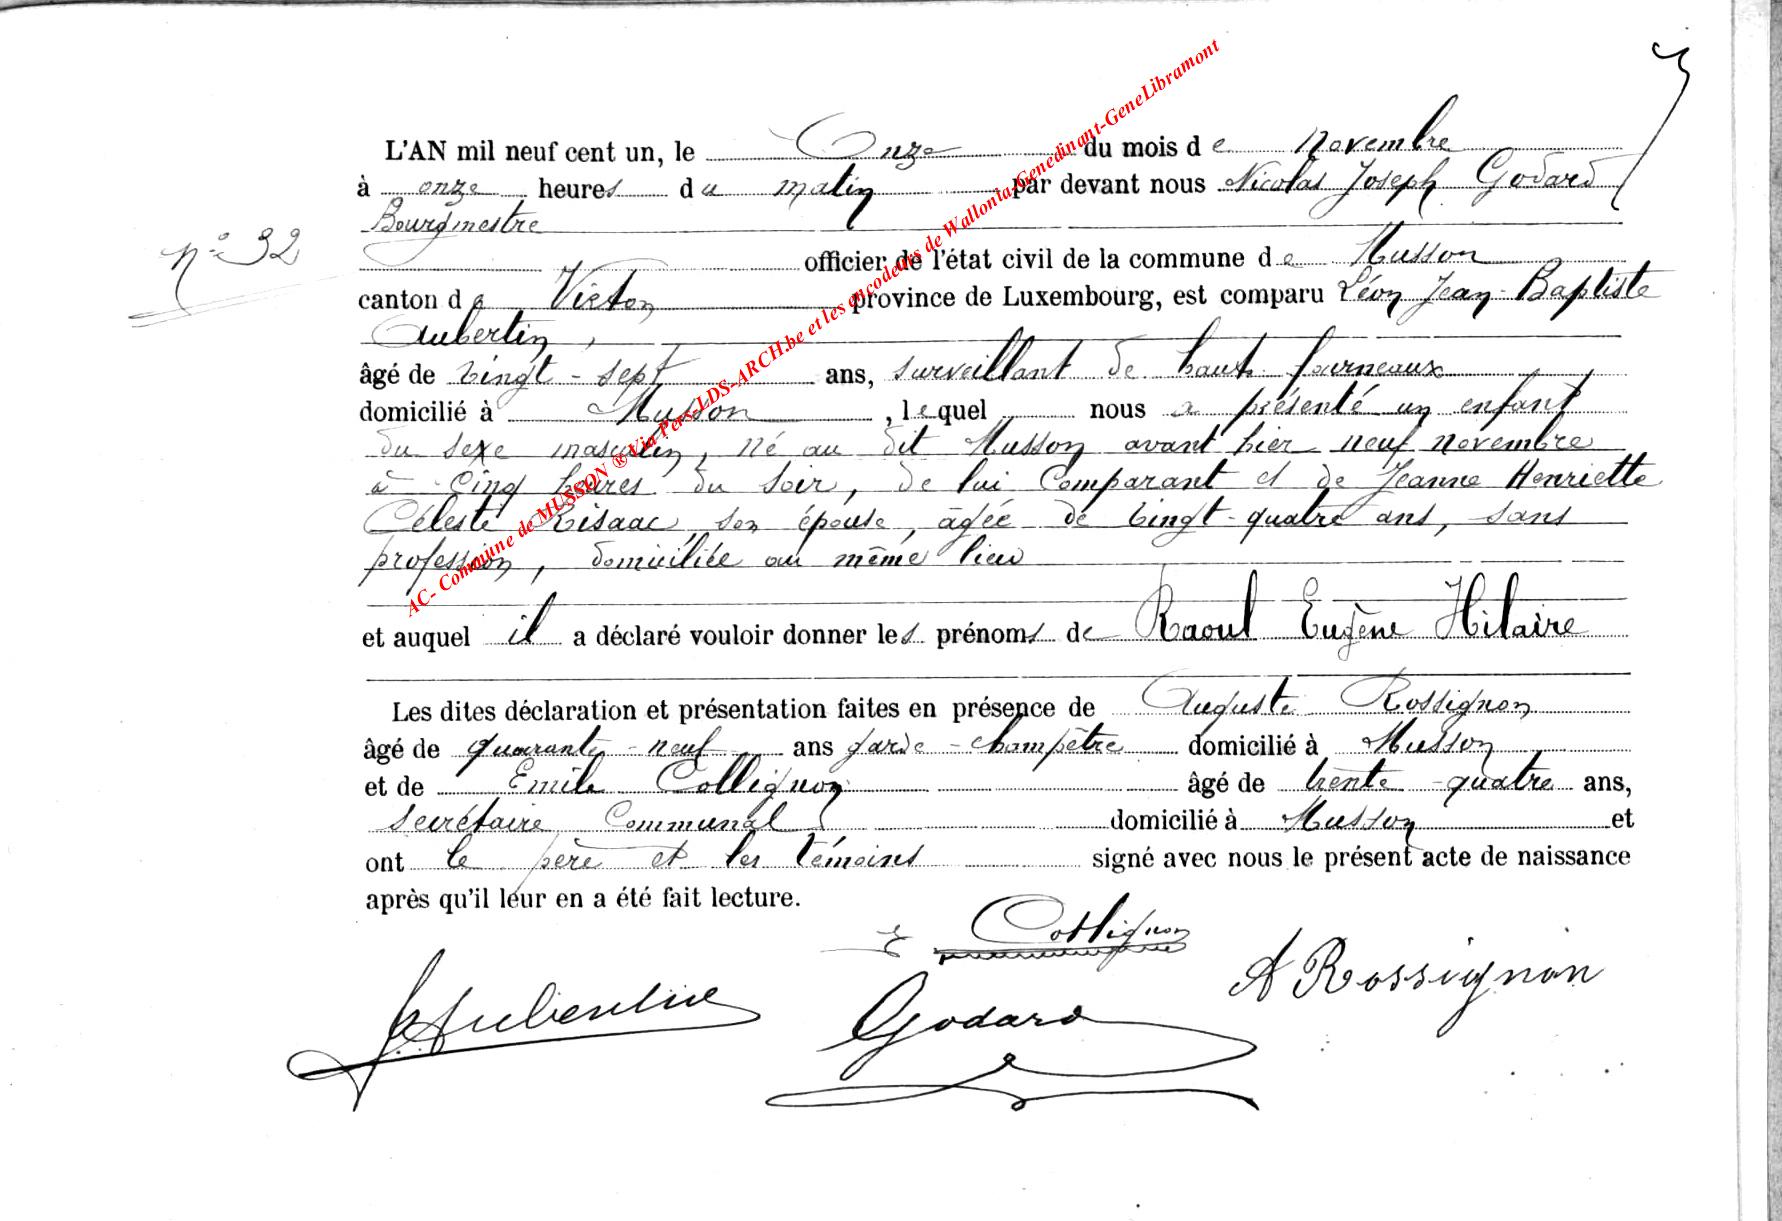 L'AN mil neuf cent un, le Onze du mois de novembre
à onze heures du matin par devant nous Nicolas Joseph Godard
Bourgmestre
n° 32
officier de l'état civil de la commune de Musson
canton de Virton province de Luxembourg, est comparu Léon Jean-Baptiste
Aubertin,
âgé de vingt-sept ans, surveillant de hauts fourneaux
domicilié à Musson, lequel nous a présenté un enfant
du sexe masculin, né au dit Musson avant hier neuf novembre
à Cinq heures du soir, de lui Comparant et de Jeanne Henriette
Céleste son épouse, âgée de vingt-quatre ans, sans
profession, domiciliée au même lieu
et auquel il a déclaré vouloir donner les prénoms de Raoul Eugène Hilaire
Les dites déclaration et présentation faites en présence de Auguste Rossignon
âgé de quarante-neuf ans garde-champêtre domicilié à Musson
et de Emile Collignon âgé de trente-quatre ans,
secrétaire Communal domicilié à Musson et
ont le père et les témoins signé avec nous le présent acte de naissance
après qu'il leur en a été fait lecture.
E Collignon
A Rossignon
Aubertin
Godard
AC- Commune de MUSSON ® Via Pers-LDS-ARCH.be et les encodeurs de Wallonia-Genedinant-GeneLibramont